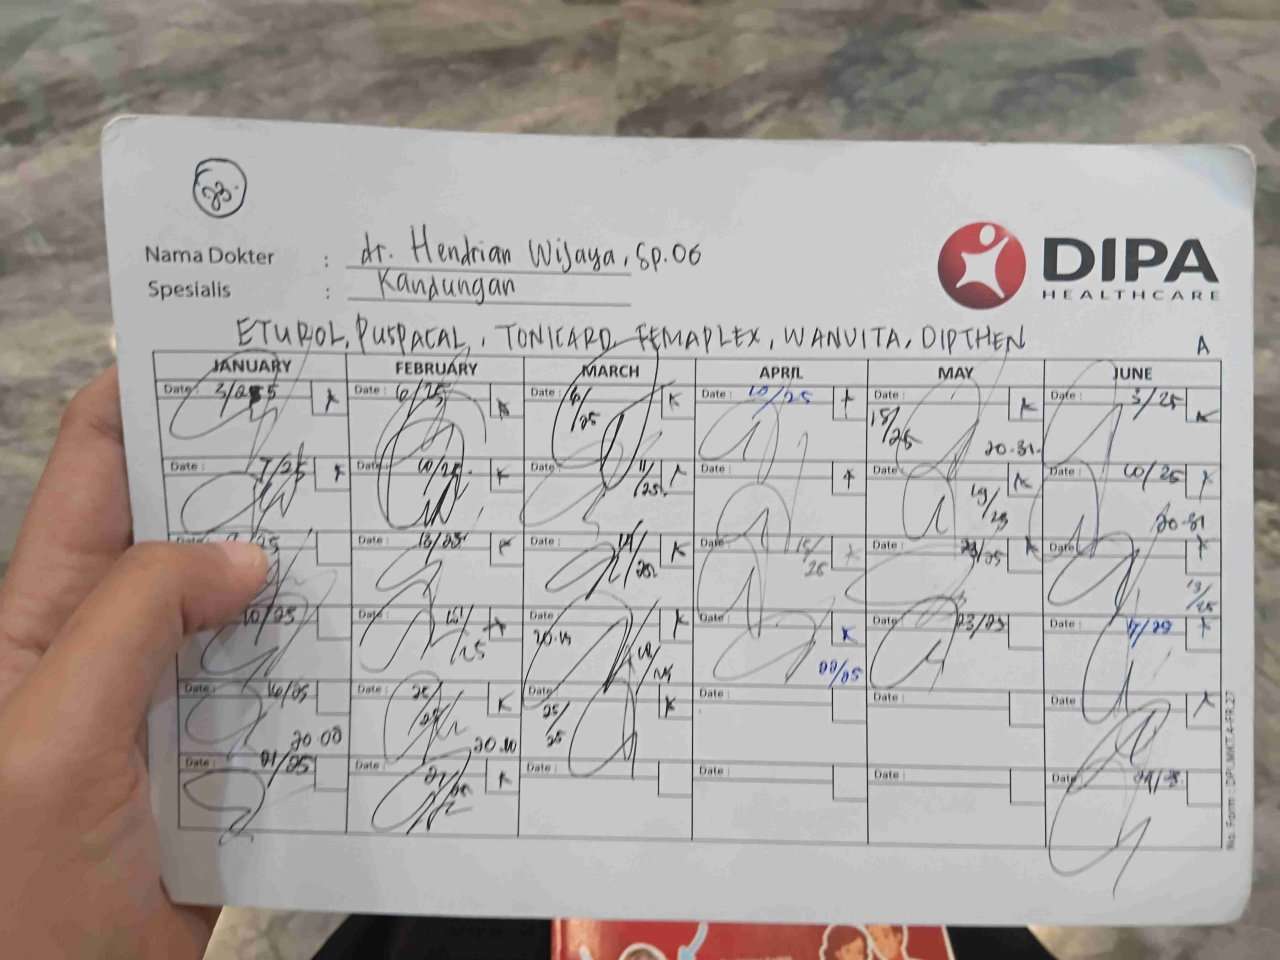 23.
Nama Dokter : dr. Hendrian Wijaya, Sp.OG
Spesialis : Kandungan
DIPA
HEALTHCARE
ETUROL, PUSPACAL, TONICARD, FEMAPLEX, WANVITA, DIPTHEN
A
JANUARY FEBRUARY MARCH APRIL MAY JUNE
Date : 3/25 Date : 6/25 Date : 6/25 Date : 10/25 Date : 15/25 20.31. Date : 3/25
Date : 7/25 Date : 10/25. Date : 11/25. Date : Date : 19/25 Date : 10/25 20.31
Date : 13/25 Date : 14/25. Date : 15/25 Date : /25 Date : 13/25
10/25 Date : Date : 20.19 Date : 22/25 Date : 23/25 Date : 17/25
Date : 16/25 20.00 Date : 25/25 20.10 Date : 25/25 Date : Date : Date :
Date : 21/25 Date : 27/25 Date : Date : Date : Date :
No. Form : DIP.MKT.4-FR.27